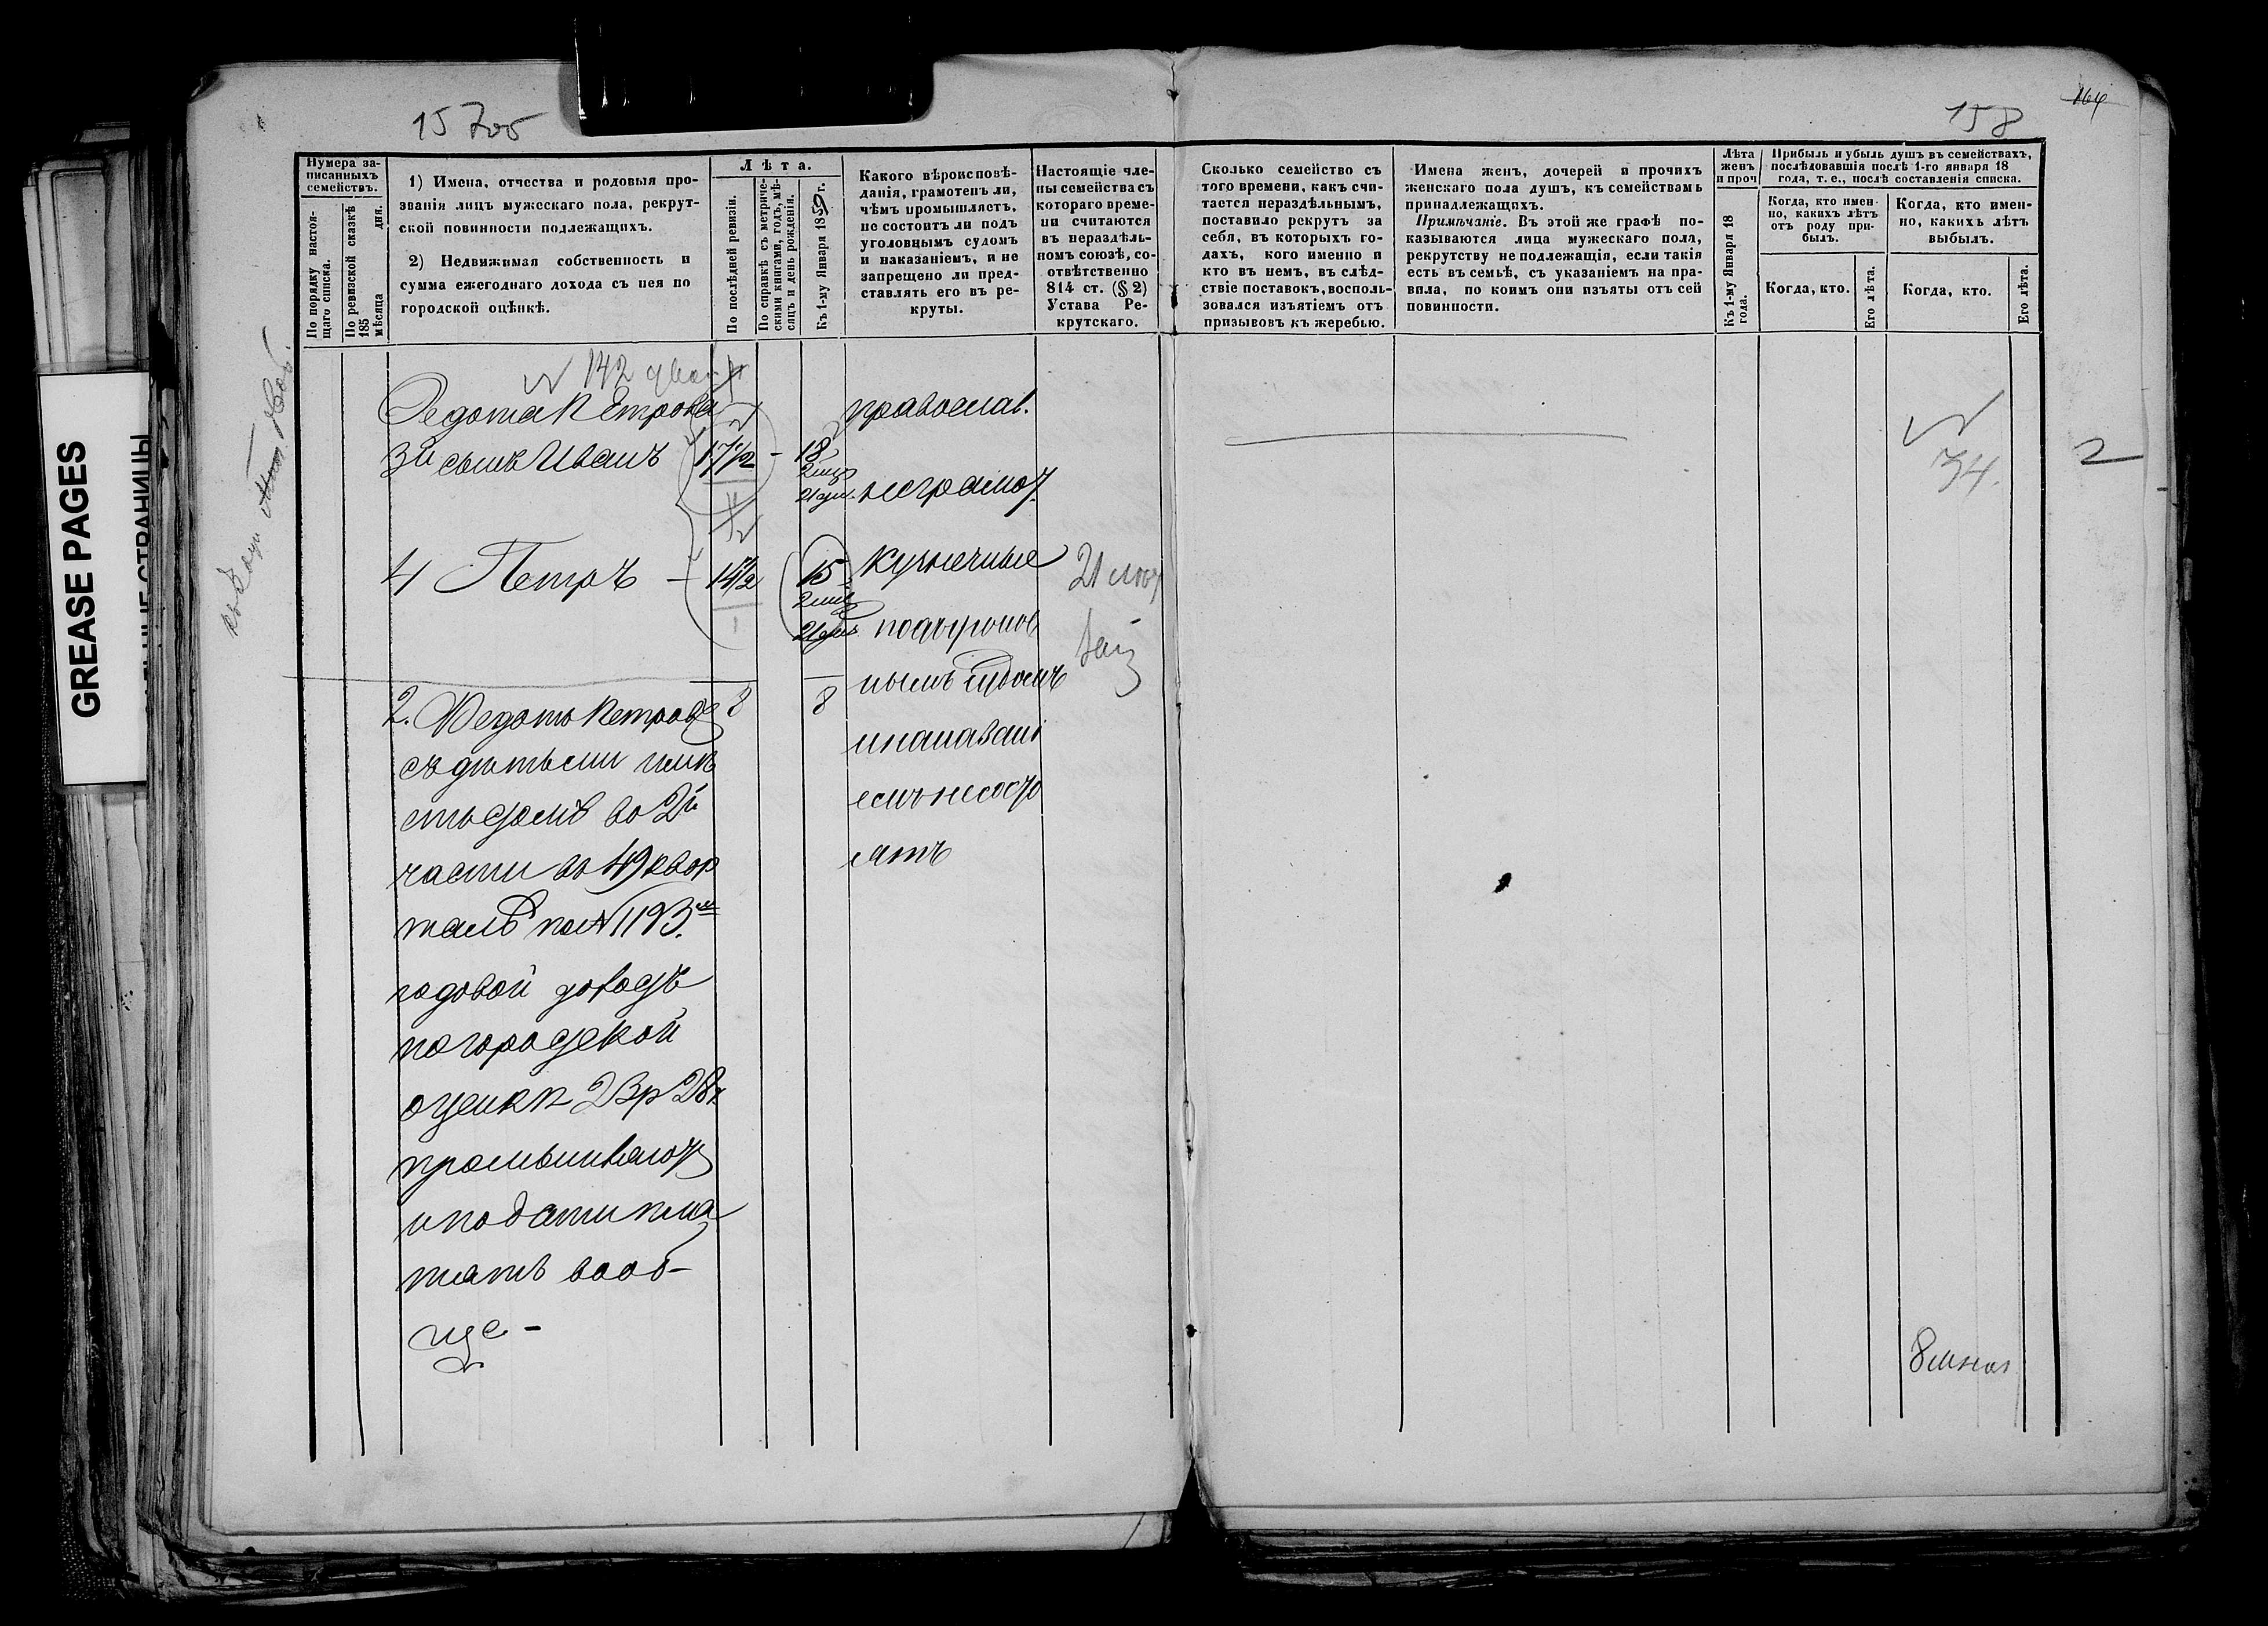 15
158
164
GREASE PAGES
Нумера за-
писанныхъ
семействъ.
По порядку настоя-
щаго списка.
По ревизской сказкѣ
185 мѣсяца дня.
1) Имена, отчества и родовыя про-
званія лицъ мужескаго пола, рекрут-
ской повинности подлежащихъ.
2) Недвижимая собственность и
сумма ежегоднаго дохода съ нея по
городской оцѣнкѣ.
Лѣта.
По послѣдней ревизіи.
По справкѣ съ метриче-
скими книгами, годъ, мѣ-
сяцъ и день рожденія.
Къ 1-му Января 1859 г.
Какого вѣроисповѣ-
данія, грамотенъ ли,
чѣмъ промышляетъ,
не состоитъ ли подъ
уголовнымъ судомъ
и наказаніемъ, и не
запрещено ли пред-
ставлять его въ ре-
круты.
Настоящіе чле-
ны семейства съ
котораго време-
ни считаются
въ нераздѣль-
номъ союзѣ, со-
отвѣтственно
814 ст. (§ 2)
Устава Ре-
крутскаго.
Сколько семейство съ
того времени, какъ счи-
тается нераздѣльнымъ,
поставило рекрутъ за
себя, въ которыхъ го-
дахъ, кого именно и
кто въ немъ, въ слѣд-
ствіе поставокъ, восполь-
зовался изъятіемъ отъ
призывовъ къ жеребью.
Имена женъ, дочерей и прочихъ
женскаго пола душъ, къ семействамъ
принадлежащихъ.
Примѣчаніе. Въ этой же графѣ по-
казываются лица мужескаго пола,
рекрутству не подлежащія, если такія
есть въ семьѣ, съ указаніемъ на пра-
вила, по коимъ они изъяты отъ сей
повинности.
Лѣта
женъ
и проч
Къ 1-му Января 18
года.
Прибыль и убыль душъ въ семействахъ,
послѣдовавшія послѣ 1-го января 18
года, т. е., послѣ составленія списка.
Когда, кто имен-
но, какихъ лѣтъ
отъ роду при-
былъ.
Когда, кто.
Его лѣта.
Когда, кто имен-
но, какихъ лѣтъ
выбылъ.
Когда, кто.
Его лѣта.
142
Федота Петрова
3й сынъ Иванъ 17½ - 18
православ.
неграмот
4 Петръ - 14½ 15
кузнечные
подъуголов
нымъ судомъ
инаказані
емъ несосто
ятъ
34.
2
2. Федотъ Петровъ 8 8
съ дѣтьми имѣ
етъ домъ во 2й
части въ 49 квар
талѣ под N 1193
годовой доходъ
погородской
оценкѣ 23р 28к
промышляют
иподати пла
тятъ вооб-
ще -